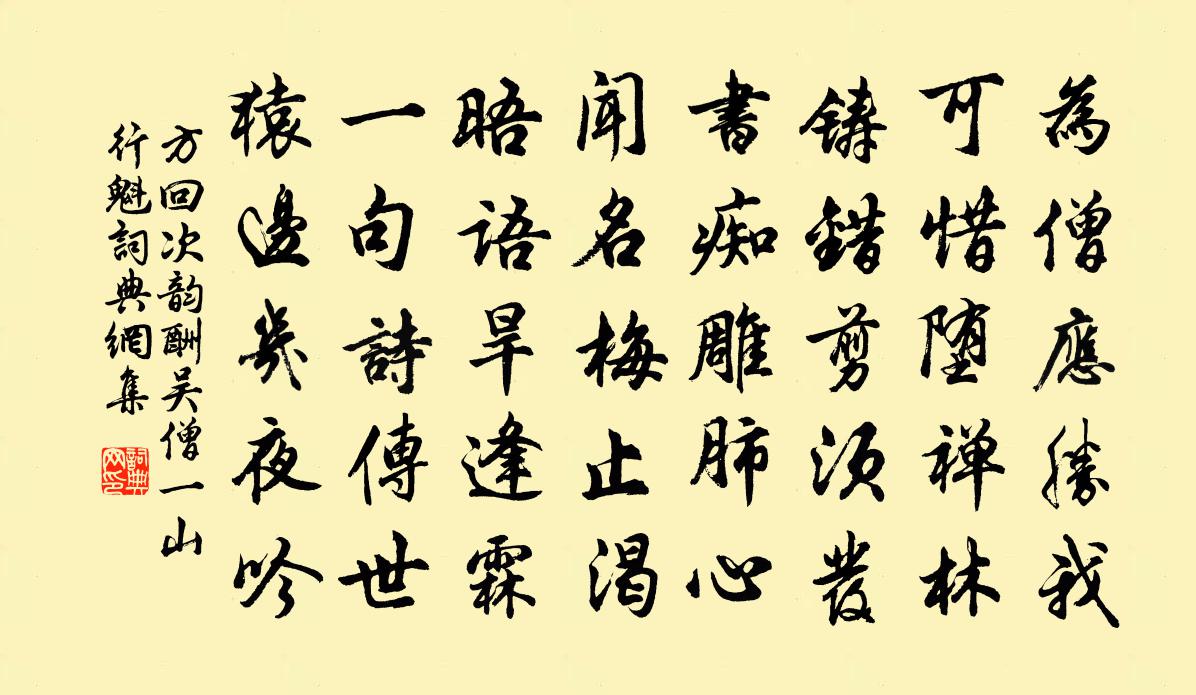 為僧應勝我
可惜堕禅林
鑄錯剪须發
書痴雕肺心
聞名梅止渴
晤语旱逢霖
一句詩傳世
猿邊幾夜吟
方回次韵酬吴僧一山
行魁詞典網集
詞典网印